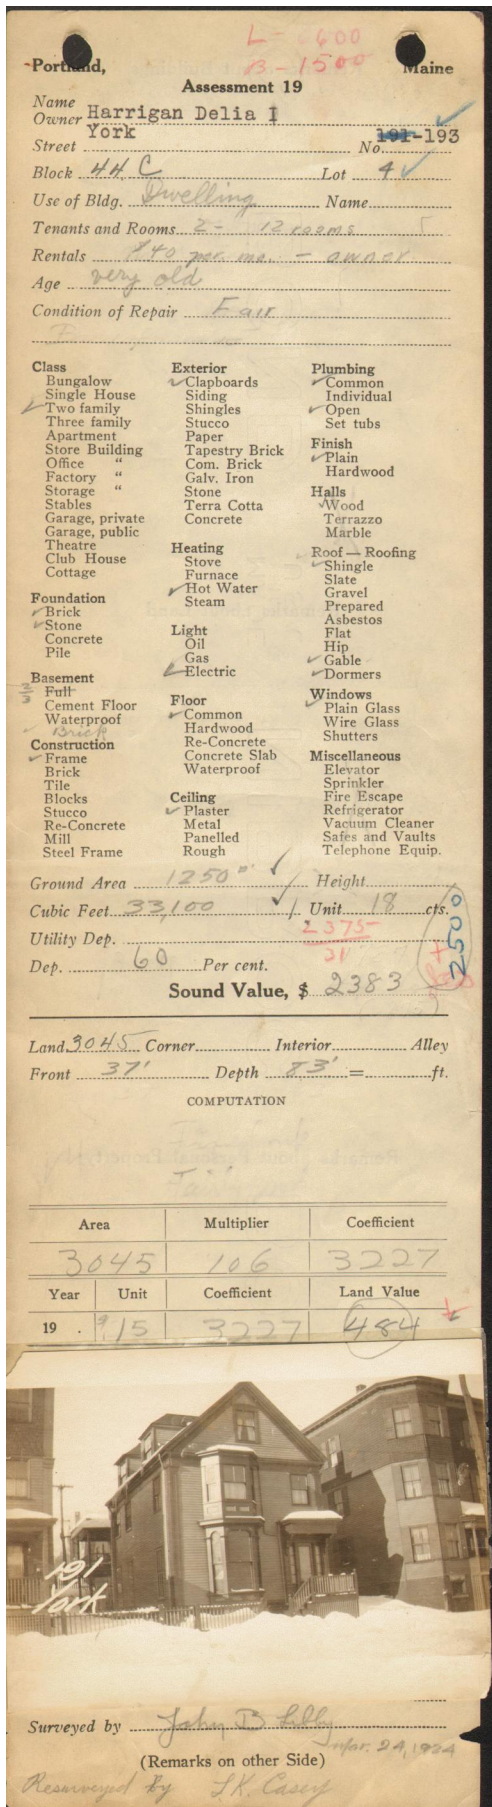 L - 6600
B - 1500
Portland, Maine
Assessment 19
Name
Owner Harrigan Delia I
Street York No. 191-193
Block 44 C Lot 4
Use of Bldg. Dwelling Name
Tenants and Rooms 2 - 12 rooms
Rentals $40 per mo. - owner
Age very old
Condition of Repair Fair
Class
Bungalow
Single House
Two family
Three family
Apartment
Store Building
Office "
Factory "
Storage "
Stables
Garage, private
Garage, public
Theatre
Club House
Cottage
Foundation
Brick
Stone
Concrete
Pile
Basement
2/3 Full
Cement Floor
Waterproof
Brick
Construction
Frame
Brick
Tile
Blocks
Stucco
Re-Concrete
Mill
Steel Frame
Exterior
Clapboards
Siding
Shingles
Stucco
Paper
Tapestry Brick
Com. Brick
Galv. Iron
Stone
Terra Cotta
Concrete
Heating
Stove
Furnace
Hot Water
Steam
Light
Oil
Gas
Electric
Floor
Common
Hardwood
Re-Concrete
Concrete Slab
Waterproof
Ceiling
Plaster
Metal
Panelled
Rough
Plumbing
Common
Individual
Open
Set tubs
Finish
Plain
Hardwood
Halls
Wood
Terrazzo
Marble
Roof — Roofing
Shingle
Slate
Gravel
Prepared
Asbestos
Flat
Hip
Gable
Dormers
Windows
Plain Glass
Wire Glass
Shutters
Miscellaneous
Elevator
Sprinkler
Fire Escape
Refrigerator
Vacuum Cleaner
Safes and Vaults
Telephone Equip.
Ground Area 1250 Height
Cubic Feet 33,100 Unit 18 cts.
Utility Dep. 2375
21
2500
Dep. 60 Per cent.
Sound Value, $ 2383
Land 3045 Corner Interior Alley
Front 37' Depth 83' = ft.
COMPUTATION
Area Multiplier Coefficient
3045 106 3227
Year Unit Coefficient Land Value
19 . $ 15 3227 484
191
York
Surveyed by John B Libby
Mar. 24, 1924
(Remarks on other Side)
Resurveyed By L.K. Casey